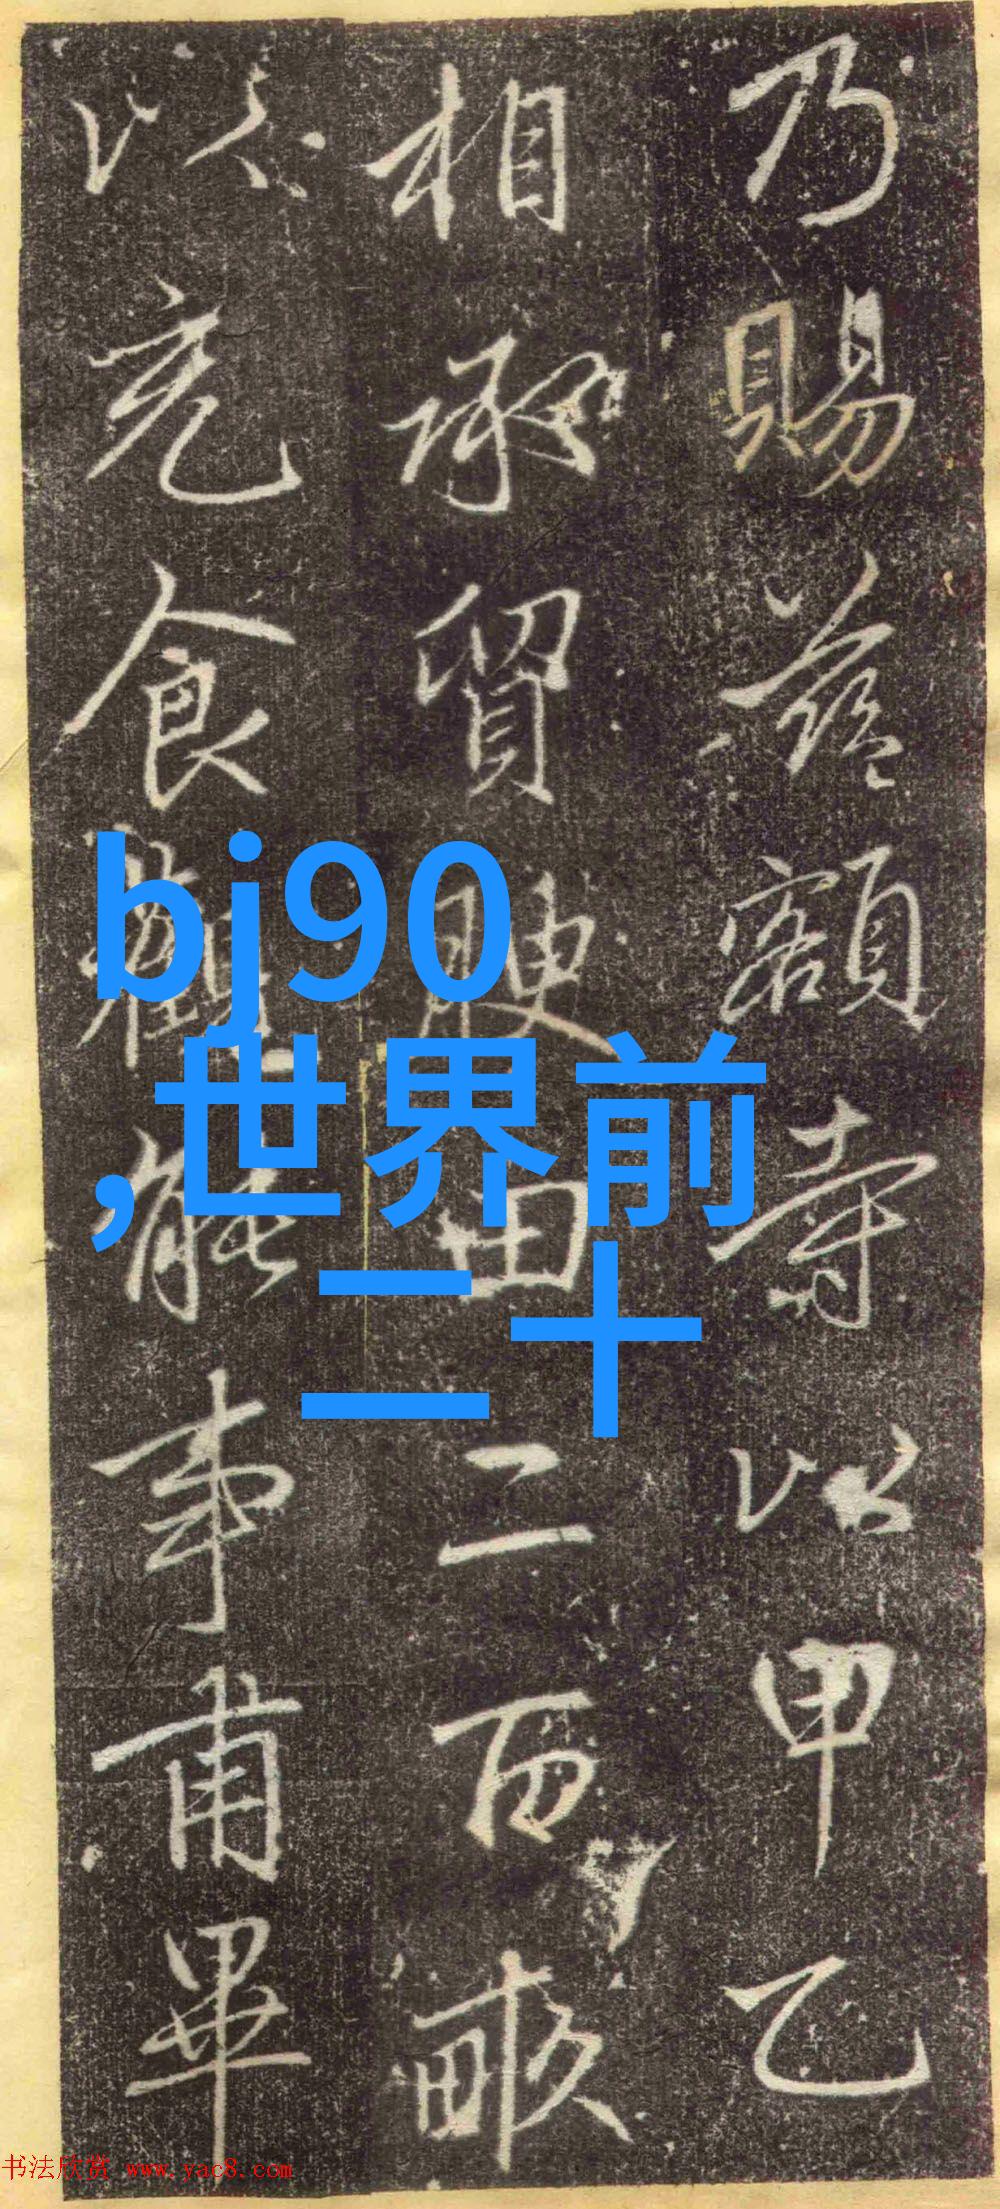 乃賜茲額寺以甲乙
相承買腴田二百畝
以充食觀能事甫畢
bj90
,世界前
二十
书法欣赏 www.yac8.com